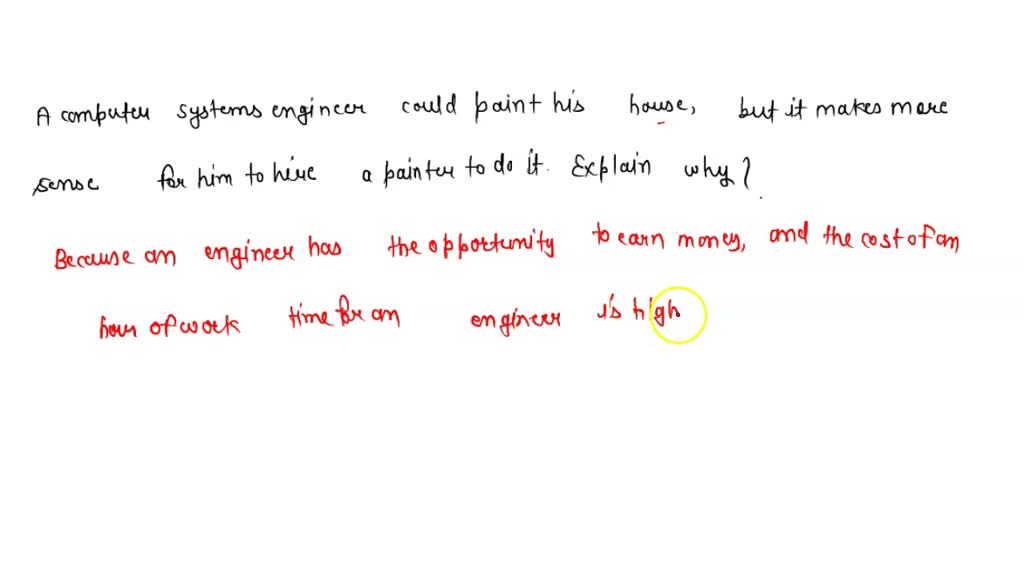 A computer systems engineer could paint his house, but it makes more
sense for him to hire a painter to do it. Explain why?
Because an engineer has the opportunity to earn money, and the cost of an
hour of work time for an engineer is high